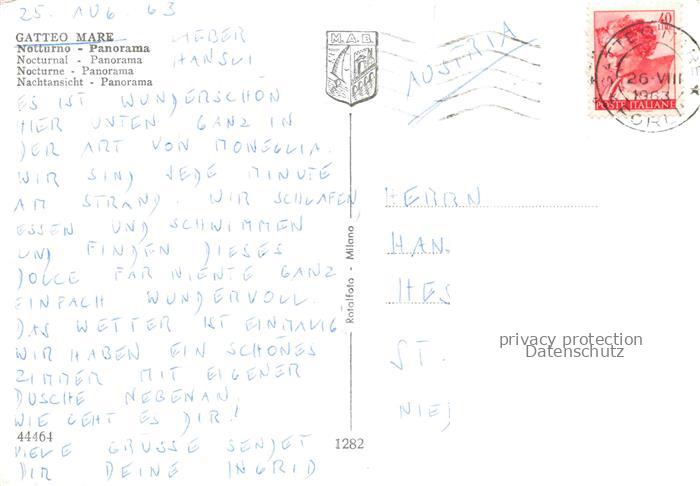 25. AUG. 63
GATTEO MARE
Notturno - Panorama
Nocturnal - Panorama
Nocturne - Panorama
Nachtansicht - Panorama
LIEBER
HANSLI
ES IST WUNDERSCHÖN
HIER UNTEN GANZ IN
DER ART VON MONEGLIA.
WIR SIND JEDE MINUTE
AM STRAND. WIR SCHLAFEN,
ESSEN UND SCHWIMMEN
UND FINDEN DIESES
DOLCE FAR NIENTE GANZ
EINFACH WUNDERVOLL.
DAS WETTER IST EINMALIG
WIR HABEN EIN SCHÖNES
ZIMMER MIT EIGENER
DUSCHE NEBENAN.
WIE GEHT ES DIR!
44464
VIELE GRÜSSE SENDET
DIR DEINE INGRID
M.A.B.
Rotalfoto - Milano
1282
AUSTRIA
40
POSTE ITALIANE
26·VIII
1963
HERRN
HAN
HES
ST.
NIE
privacy protection
Datenschutz